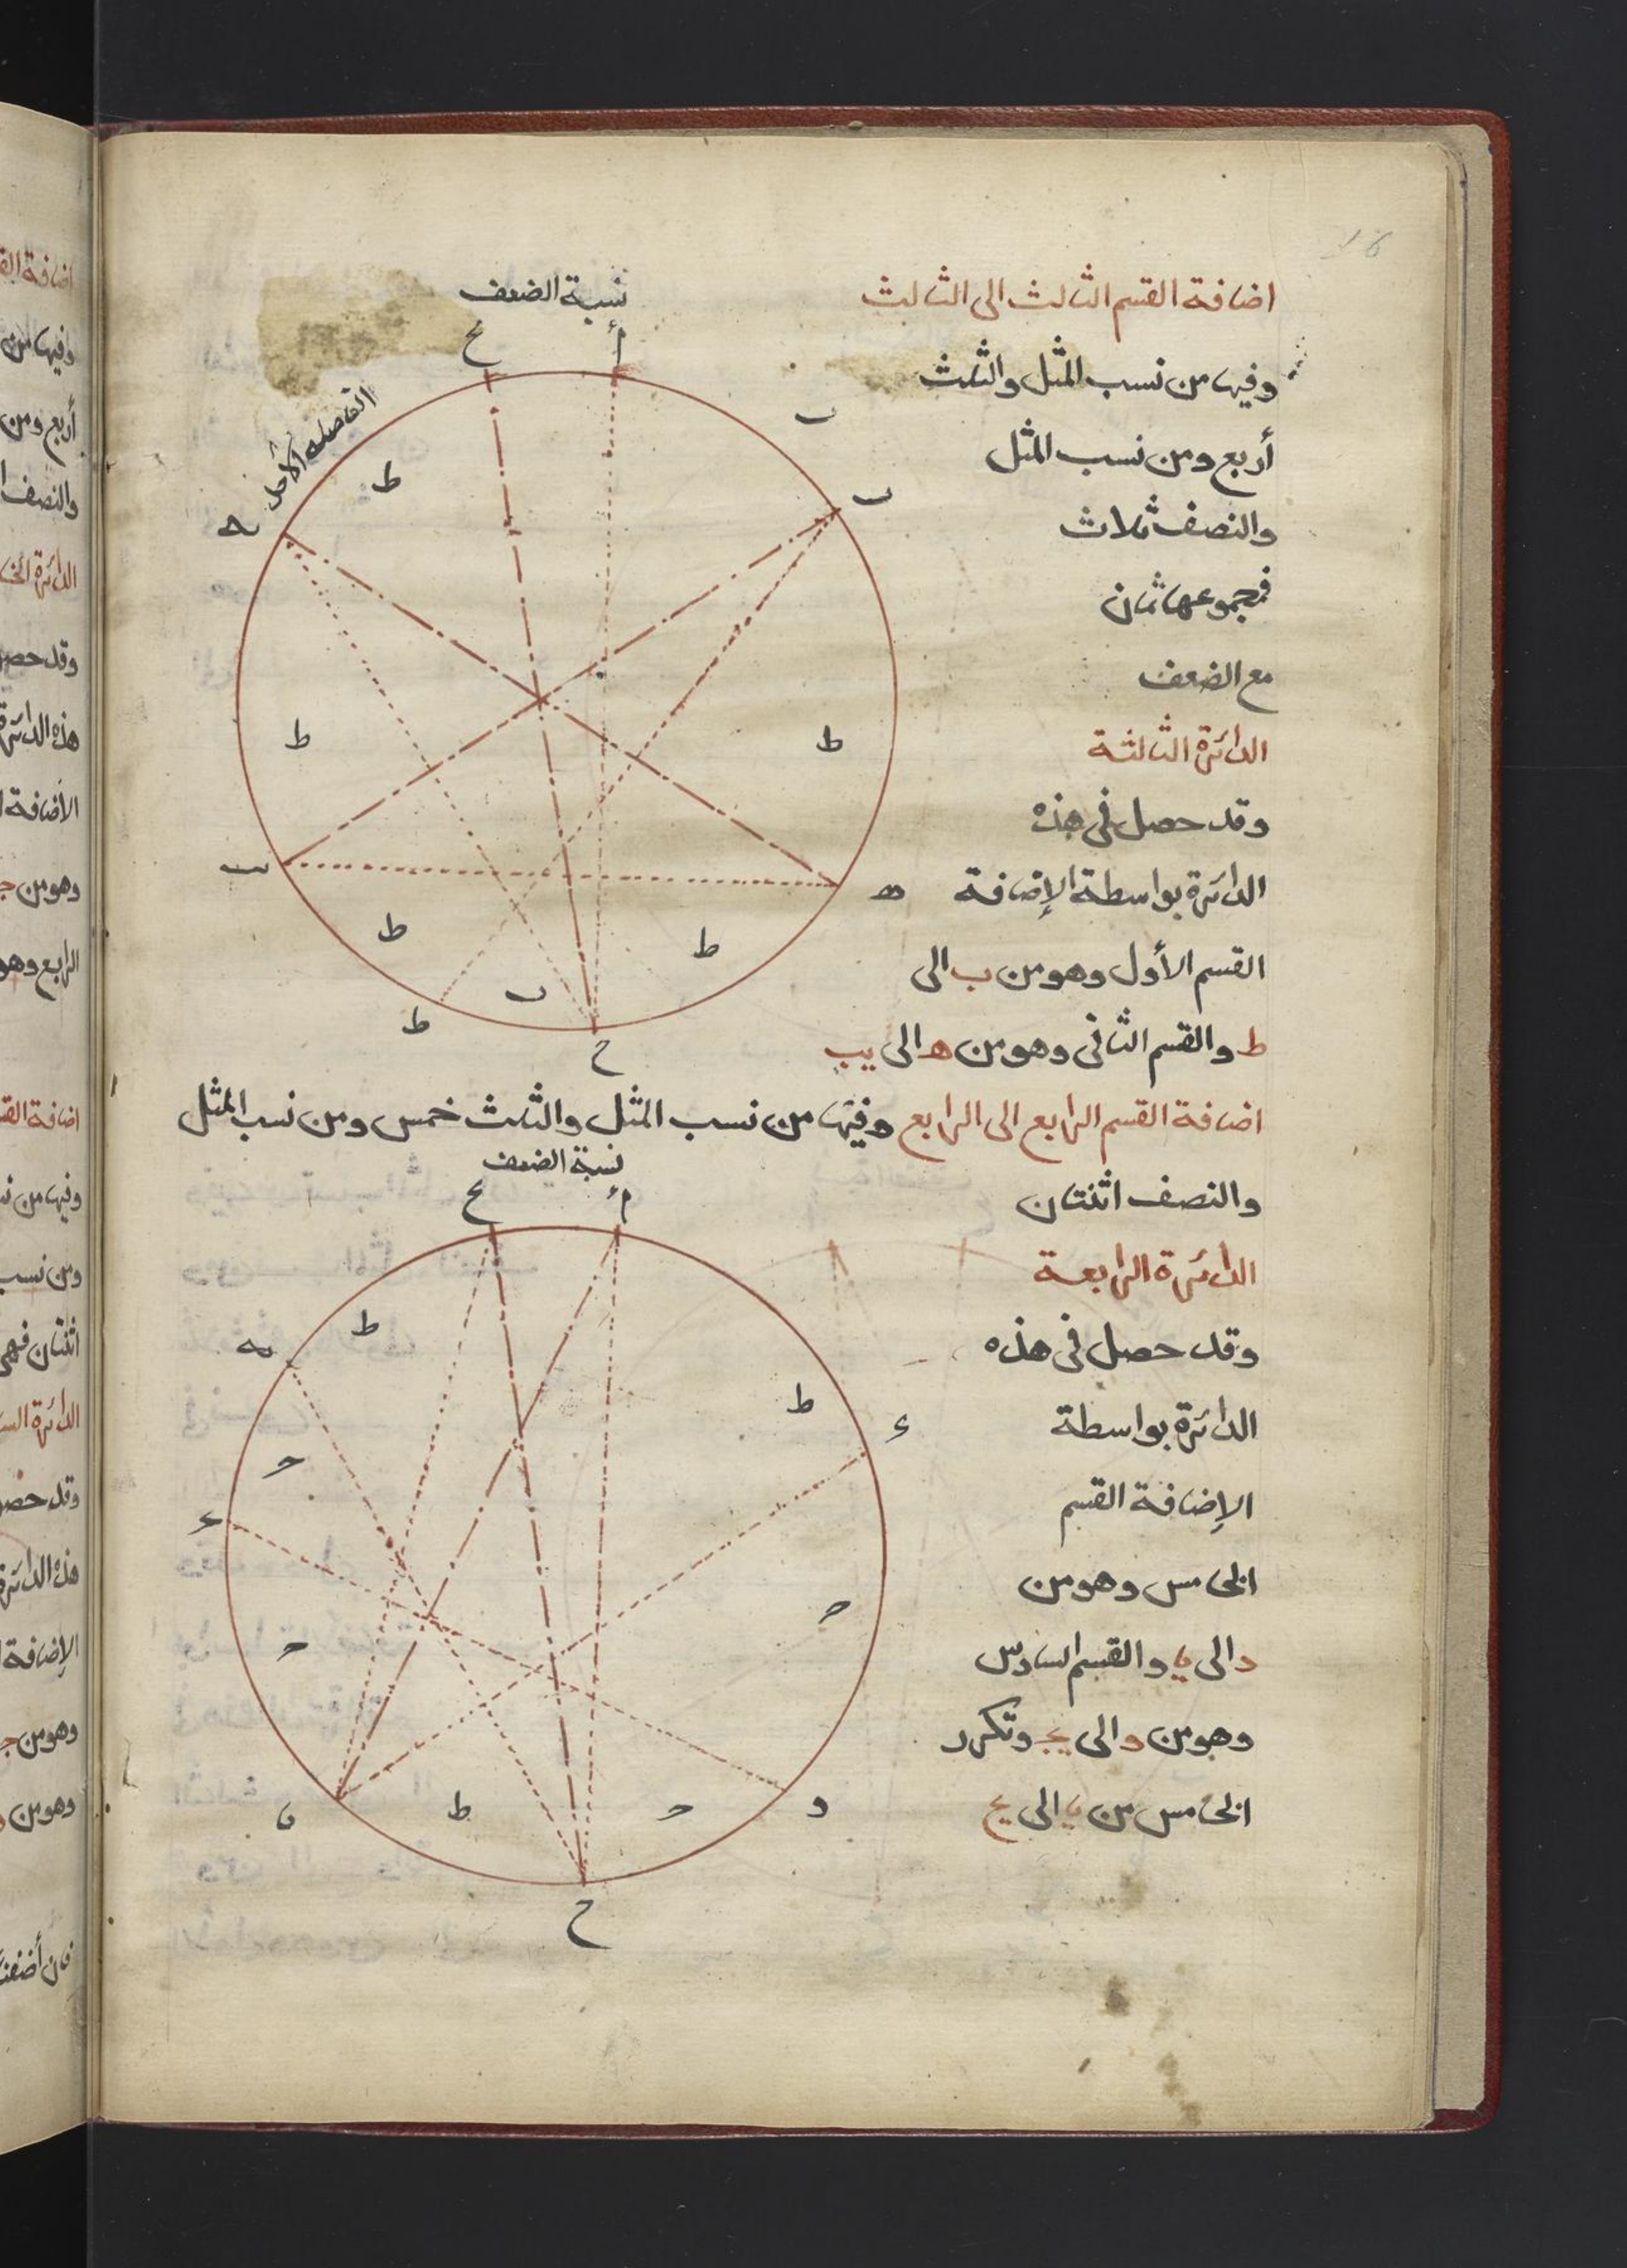 16
اضافة القسم الثالث الى الثالث
نسبة الضعف
وفيها من نسب المثل والثلث
أربع ومن نسب المثل
والنصف ثلاث
فمجموعها ثمان
مع الضعف
الدائرة الثالثة
وقد حصل فى هذه
الدائرة بواسطة الإضافة
القسم الأول وهو من ب الى
ط والقسم الثانى وهو من ه الى يب
اضافة القسم الرابع الى الرابع وفيها من نسب المثل والثلث خمس ومن نسب المثل
نسبة الضعف
والنصف اثنتان
الدائرة الرابعة
وقد حصل فى هذه
الدائرة بواسطة
الإضافة القسم
الخامس وهو من
د الى يا والقسم السادس
وهو من و الى يج وتكرر
الخامس من يا الى يح
يح
أ
ب
ط
ط
ط
ط
ط
ه
ح
يح
أ
ط
ط
ط
و
ح